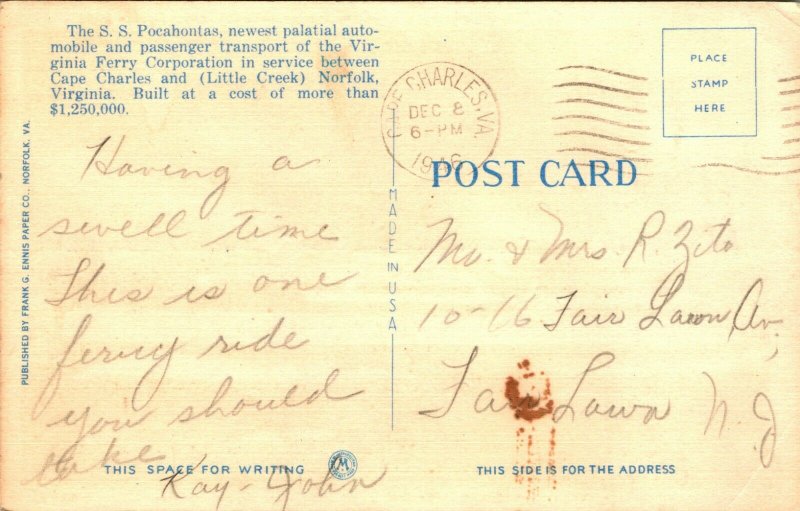 The S. S. Pocahontas, newest palatial auto-
mobile and passenger transport of the Vir-
ginia Ferry Corporation in service between
Cape Charles and (Little Creek) Norfolk,
Virginia. Built at a cost of more than
$1,250,000.
PUBLISHED BY FRANK G. ENNIS PAPER CO., NORFOLK, VA.
CAPE CHARLES, VA.
DEC 8
6-PM
1946
PLACE
STAMP
HERE
POST CARD
MADE IN USA
Having a
swell time
This is one
ferry ride
you should
take
Kay - John
Mr. & Mrs. R. Zito
10-16 Fair Lawn Av,
Fair Lawn N. J
THIS SPACE FOR WRITING
THIS SIDE IS FOR THE ADDRESS